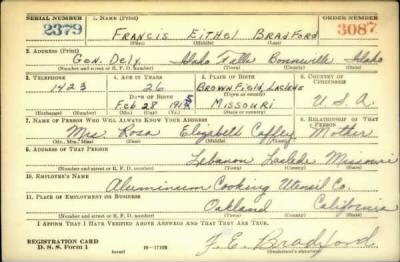 SERIAL NUMBER 1. NAME (Print) ORDER NUMBER
2379 FRANCIS EITHEL BRADFORD 3087
(First) (Middle) (Last)
2. ADDRESS (Print)
Gen. Dely. Idaho Falls Bonneville Idaho
(Number and street or R. F. D. number) (Town) (County) (State)
3. TELEPHONE 4. AGE IN YEARS 5. PLACE OF BIRTH 6. COUNTRY OF CITIZENSHIP
1423 26 BROWNFIELD, LACLEDE
DATE OF BIRTH (Town or county)
Feb 28 MISSOURI U.S.A.
(Mo.) (Day) (Yr.) (State or country)
7. NAME OF PERSON WHO WILL ALWAYS KNOW YOUR ADDRESS 8. RELATIONSHIP OF THAT PERSON
Mrs. Rosa Elizabeth Caffey Mother
(Mr., Mrs., Miss) (First) (Middle) (Last)
9. ADDRESS OF THAT PERSON
Lebanon Laclede Missouri
(Number and street or R. F. D. number) (Town) (County) (State)
10. EMPLOYER'S NAME
Aluminium Cooking Utensil Co.
11. PLACE OF EMPLOYMENT OR BUSINESS
Oakland California
(Number and street or R. F. D. number) (Town) (County) (State)
I AFFIRM THAT I HAVE VERIFIED ABOVE ANSWERS AND THAT THEY ARE TRUE.
REGISTRATION CARD
D. S. S. Form 1 F. E. Bradford
(Registrant's signature)